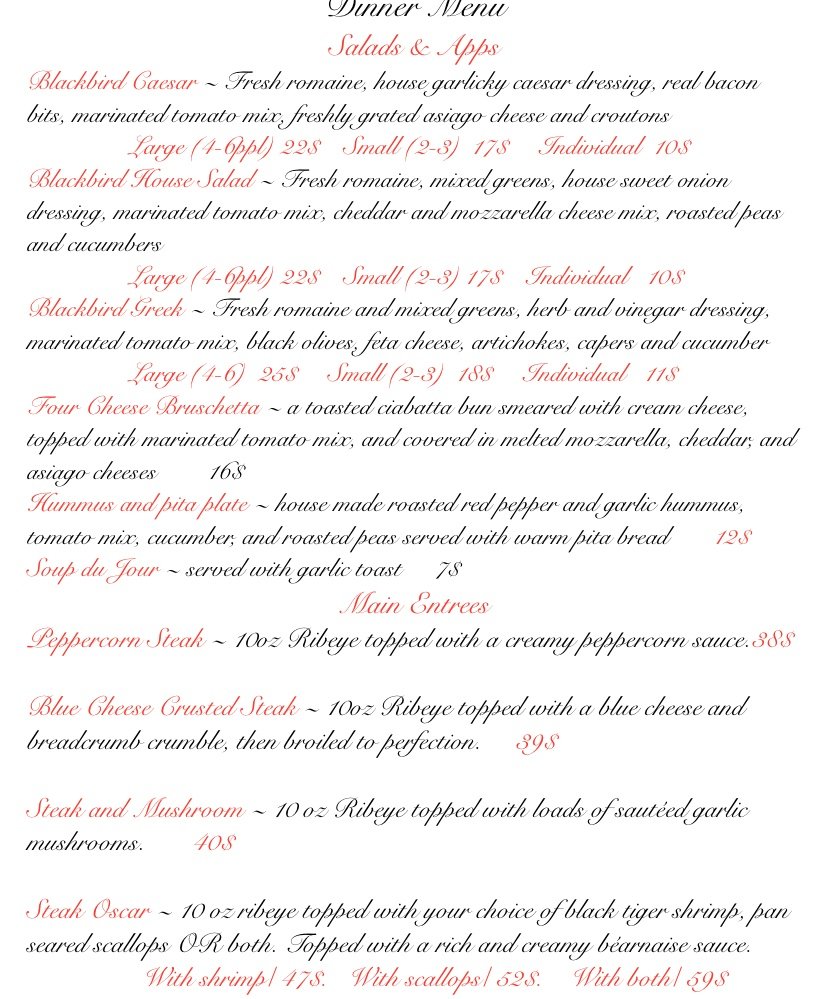 Dinner Menu
Salads & Apps
Blackbird Caesar ~ Fresh romaine, house garlicky caesar dressing, real bacon
bits, marinated tomato mix, freshly grated asiago cheese and croutons
Large (4-6ppl) 22$ Small (2-3) 17$ Individual 10$
Blackbird House Salad ~ Fresh romaine, mixed greens, house sweet onion
dressing, marinated tomato mix, cheddar and mozzarella cheese mix, roasted peas
and cucumbers
Large (4-6ppl) 22$ Small (2-3) 17$ Individual 10$
Blackbird Greek ~ Fresh romaine and mixed greens, herb and vinegar dressing,
marinated tomato mix, black olives, feta cheese, artichokes, capers and cucumber
Large (4-6) 25$ Small (2-3) 18$ Individual 11$
Four Cheese Bruschetta ~ a toasted ciabatta bun smeared with cream cheese,
topped with marinated tomato mix, and covered in melted mozzarella, cheddar, and
asiago cheeses 16$
Hummus and pita plate ~ house made roasted red pepper and garlic hummus,
tomato mix, cucumber, and roasted peas served with warm pita bread 12$
Soup du Jour ~ served with garlic toast 7$
Main Entrees
Peppercorn Steak ~ 10oz Ribeye topped with a creamy peppercorn sauce.38$
Blue Cheese Crusted Steak ~ 10oz Ribeye topped with a blue cheese and
breadcrumb crumble, then broiled to perfection. 39$
Steak and Mushroom ~ 10 oz Ribeye topped with loads of sautéed garlic
mushrooms. 40$
Steak Oscar ~ 10 oz ribeye topped with your choice of black tiger shrimp, pan
seared scallops OR both. Topped with a rich and creamy béarnaise sauce.
With shrimp| 47$. With scallops| 52$. With both| 59$